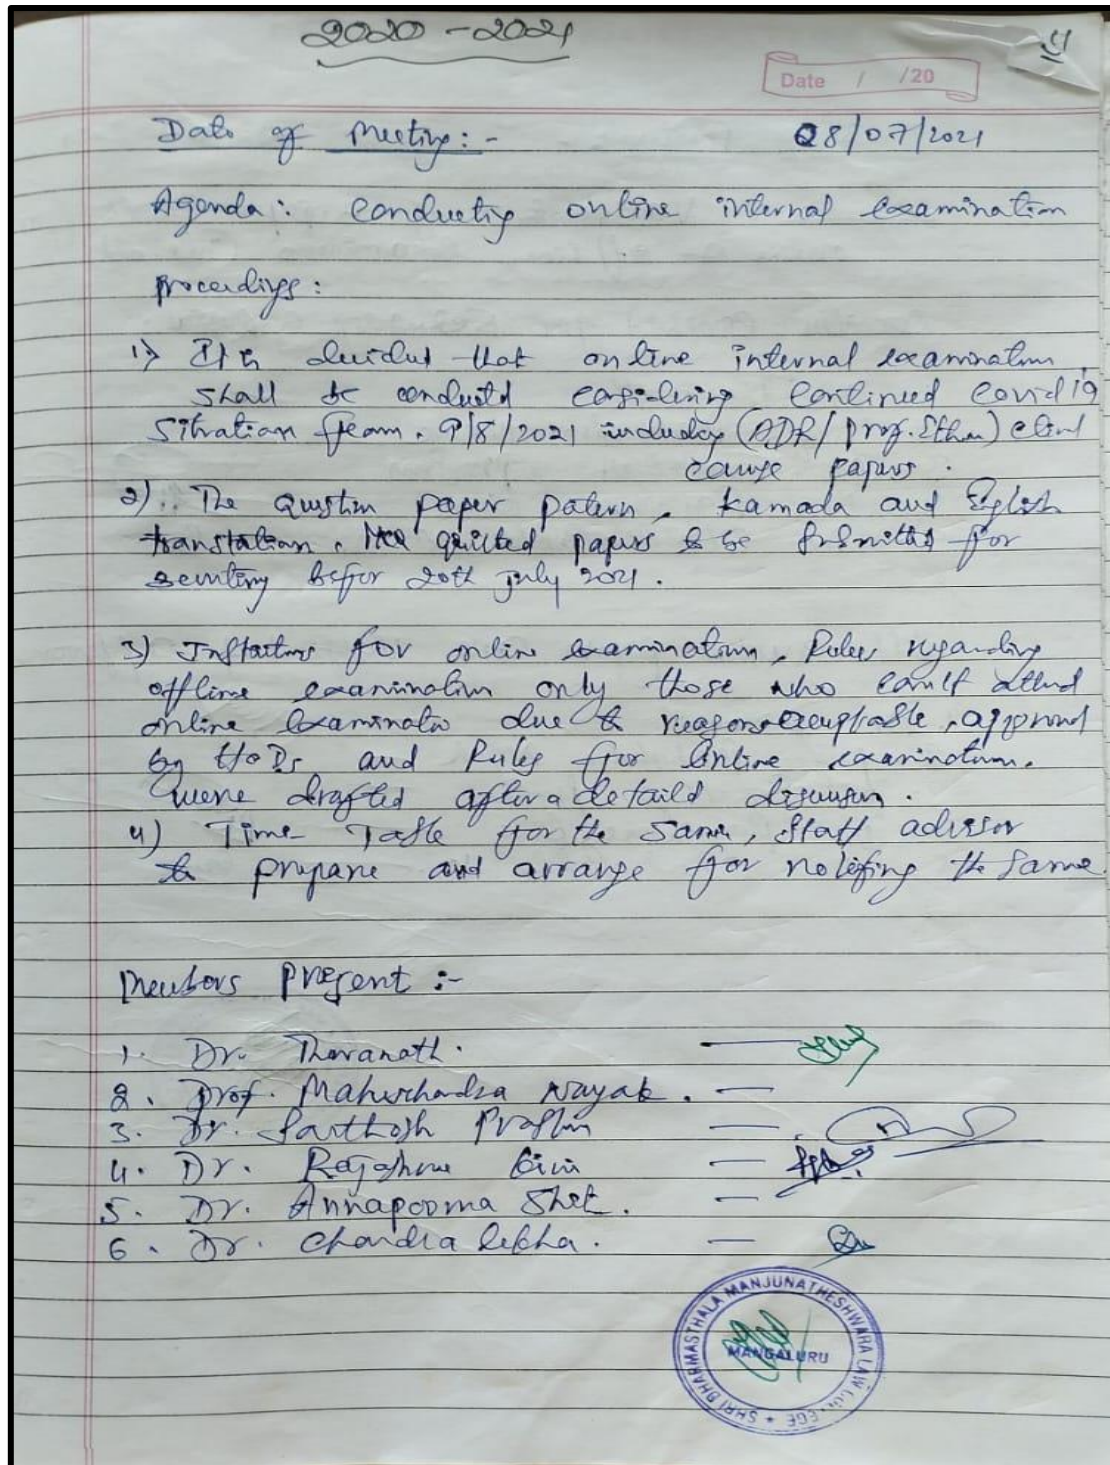 2020 - 2021
4
Date / /20
Date of Meeting:- 08/07/2021
Agenda: Conducting online internal examination
proceedings:
1) It is decided that online internal examination
shall be conducted considering continued covid 19
situation from. 9/8/2021 including (ADR/ Prof. Ethics) Clinical
course papers.
2) The Question paper patern, Kannada and English
translation, papers to be submitted for
scrutiny before 20th July 2021.
3) for online examination, Rules regarding
offline examination only those who can't attend
online examination due to reasons acceptable, approved
by HoDs and Rules for online examination.
were drafted after a detaild discussion.
4) Time Table for the same, Staff advisor
to prepare and arrange for notifing the same
Members Present :-
1. Dr. Tharanath.
2. Prof. Maheschandra Nayak. —
3. Dr. Santhosh Prabhu —
4. Dr. Rajashree —
5. Dr. Annapoorna Shet. —
6. Dr. Chandra lekha. —
SHRI DHARMASTHALA MANJUNATHESHWARA LAW COLLEGE
MANGALURU